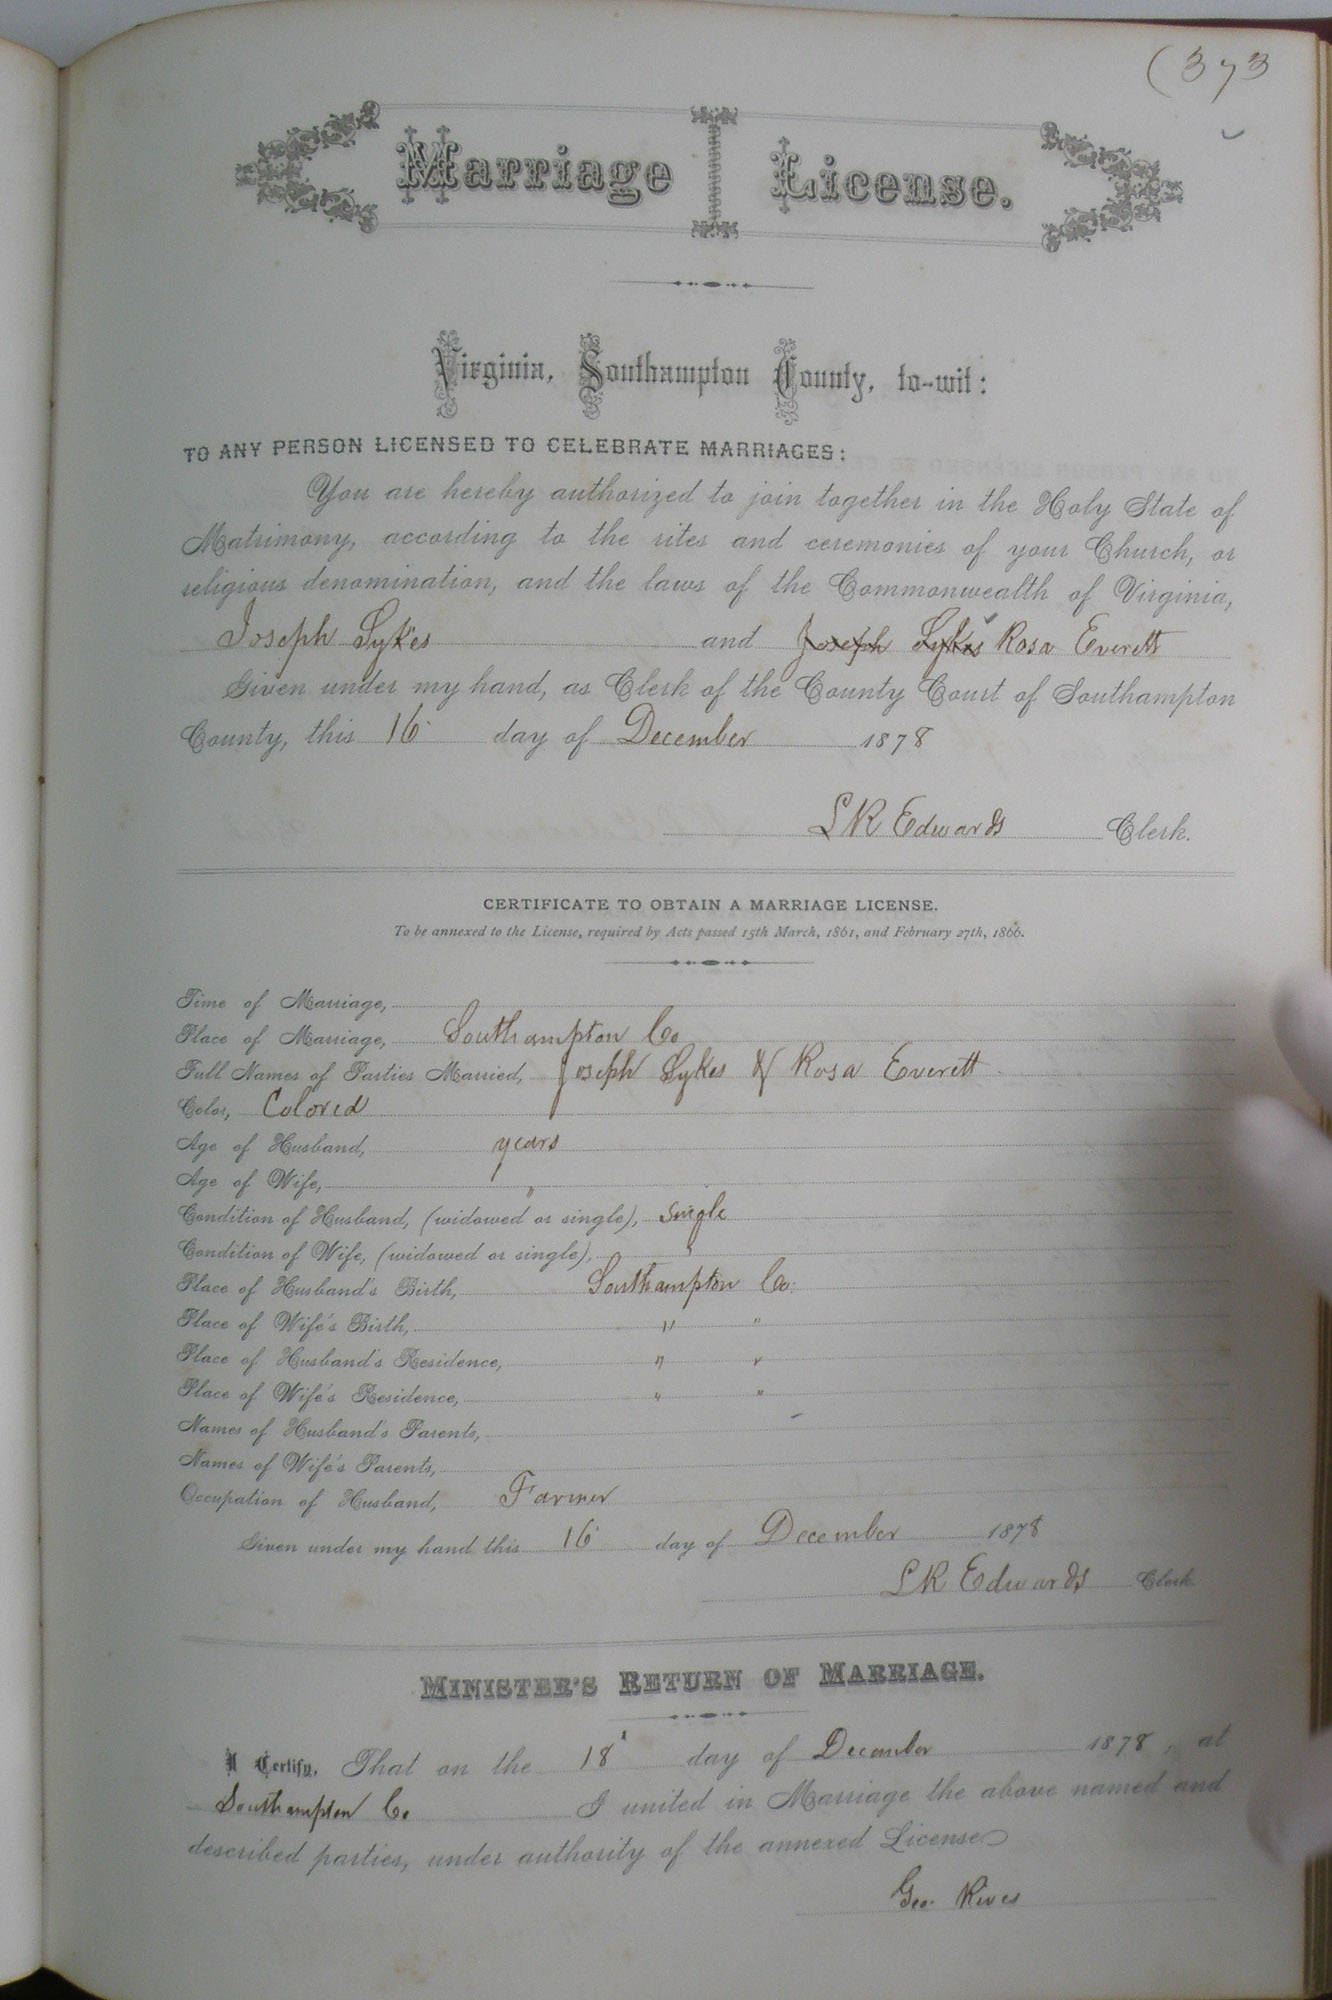 (373
Marriage License.
Virginia, Southampton County, to-wit:
TO ANY PERSON LICENSED TO CELEBRATE MARRIAGES:
You are hereby authorized to join together in the Holy State of
Matrimony, according to the rites and ceremonies of your Church, or
religious denomination, and the laws of the Commonwealth of Virginia,
Joseph Sykes and Joseph Sykes Rosa Everett
Given under my hand, as Clerk of the County Court of Southampton
County, this 16 day of December 1878
L R Edwards Clerk.
CERTIFICATE TO OBTAIN A MARRIAGE LICENSE.
To be annexed to the License, required by Acts passed 15th March, 1861, and February 27th, 1866.
Time of Marriage,
Place of Marriage, Southampton Co
Full Names of Parties Married, Joseph Sykes & Rosa Everett
Color, Colored
Age of Husband, years
Age of Wife, "
Condition of Husband, (widowed or single), single
Condition of Wife, (widowed or single), "
Place of Husband's Birth, Southampton Co.
Place of Wife's Birth, " "
Place of Husband's Residence, " "
Place of Wife's Residence, " "
Names of Husband's Parents,
Names of Wife's Parents,
Occupation of Husband, Farmer
Given under my hand this 16 day of December 1878
L R Edwards Clerk
MINISTER'S RETURN OF MARRIAGE.
I Certify, That on the 18 day of December 1878, at
Southampton Co I united in Marriage the above named and
described parties, under authority of the annexed License
Geo. Rives